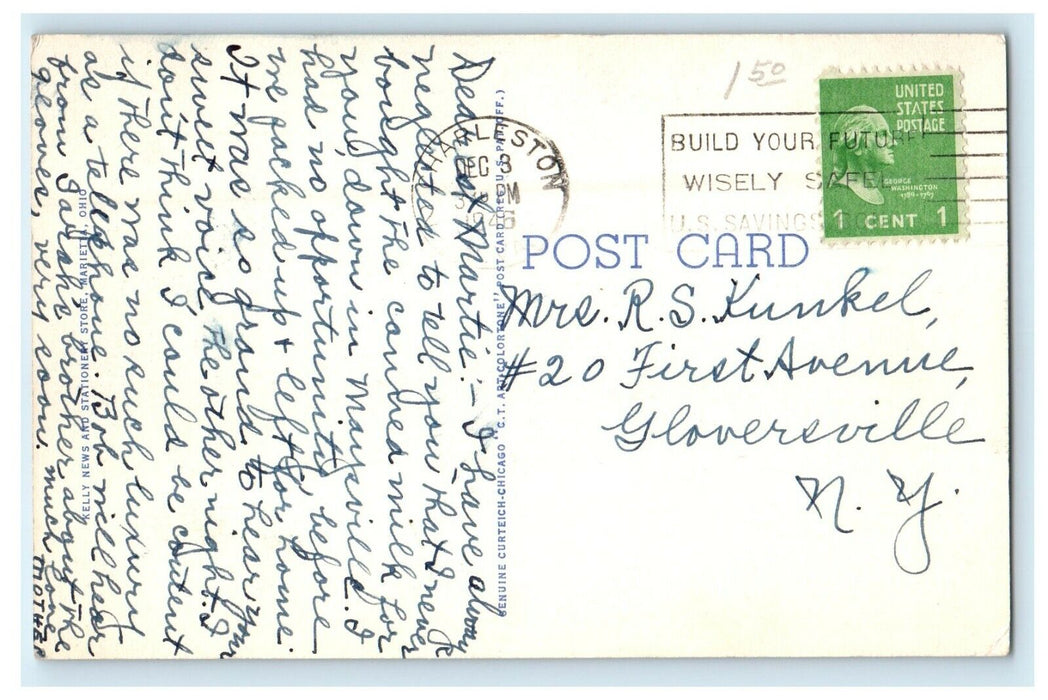 1 50
UNITED
STATES
POSTAGE
GEORGE
WASHINGTON
1789-1797
1 CENT 1
CHARLESTON
DEC 3
PM
1946
BUILD YOUR FUTURE
WISELY SAFE
U.S. SAVINGS
POST CARD
Mrs. R. S. Kunkel,
#20 First Avenue,
Gloversville
N. Y.
Dear Martie: - I have always
neglected to tell you that I never
bought the canned milk for
you, down in Maysville. I
had no opportunity before
we packed up + left for home.
It was so grand to hear your
sweet voice the other night. I
don't think I could be content
if there was no such luxury
as a telephone. Bob will hear
from Sarah's brother about the
geones, very soon. Much love
MOTHER
GENUINE CURTEICH-CHICAGO "C.T. ART-COLORTONE" POST CARD (REG. U.S. PAT. OFF.)
KELLY NEWS AND STATIONERY STORE, MARIETTA, OHIO